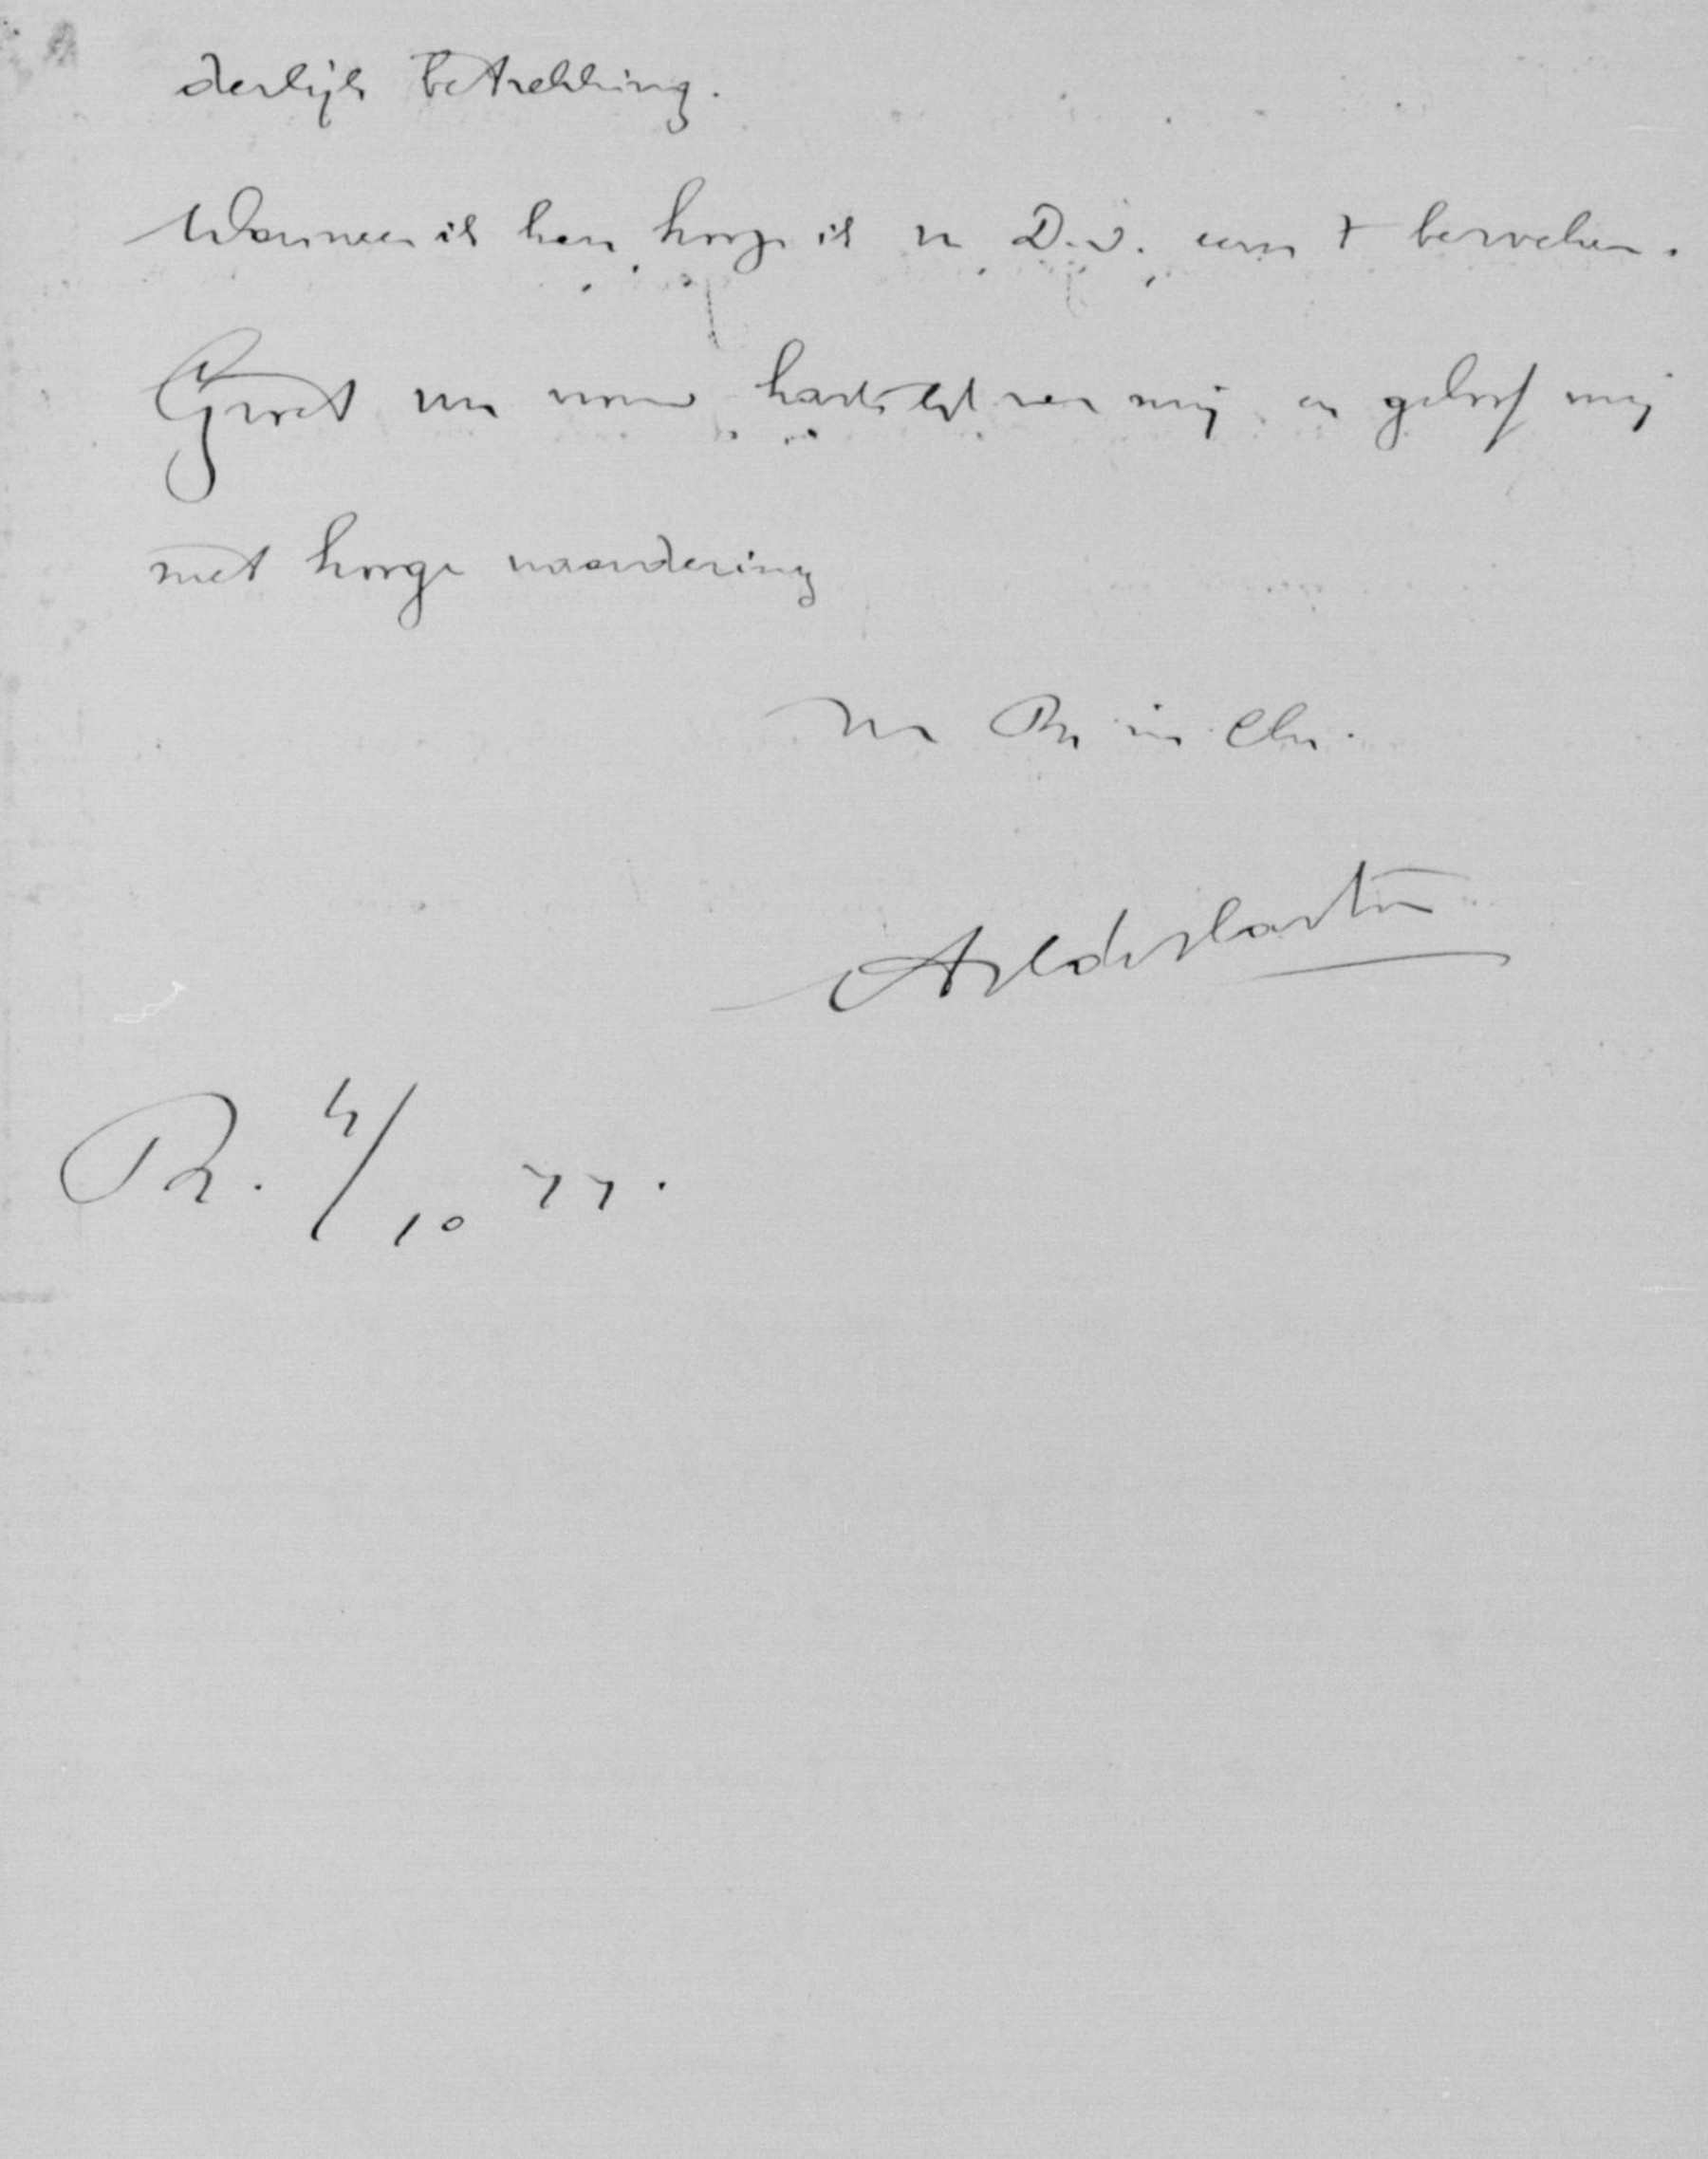 derlijke betrekking.
Wanneer ik kan, hoop ik u D.V. eens te bezoeken.
Groet uw vrouw hartelijk van mij en geloof mij
met hooge waardering
Uw Br in Chr.
R. 4/10 77.